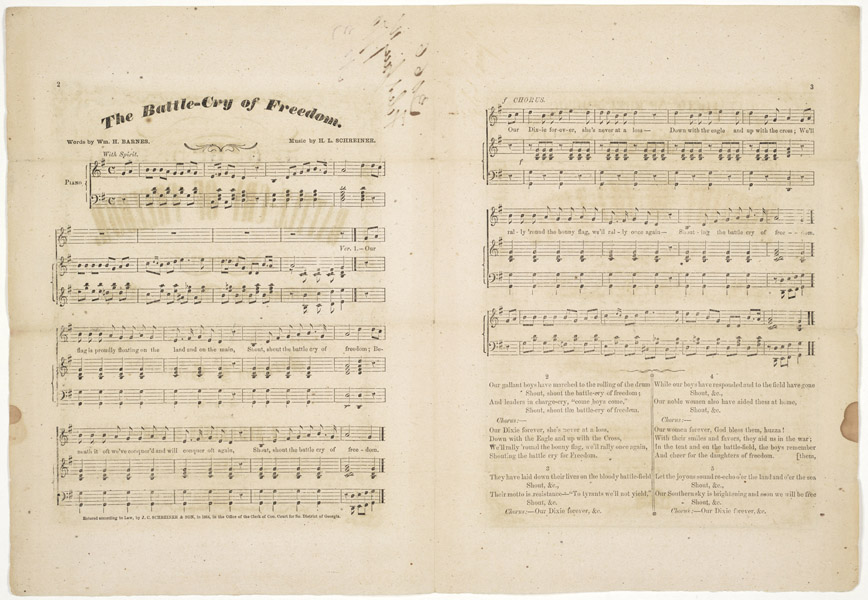 2
The Battle-Cry of Freedom.
Words by Wm. H. BARNES.
Music by H. L. SCHREINER.
With Spirit.
PIANO.
Ver. 1.—Our
flag is proudly floating on the land and on the main, Shout, shout the battle cry of freedom; Be-
neath it oft we've conquer'd and will conquer oft again, Shout, shout the battle cry of free - dom.
Entered according to Law, by J. C. SCHREINER & SON, in the Office of the Clerk of Con. Court for So. District of Georgia.
3
f CHORUS.
Our Dix-ie for-ev-er, she's never at a loss— Down with the eagle and up with the cross; We'll
f
ral-ly 'round the bonny flag, we'll ral-ly once again— Shout-ing the battle cry of free - dom.
2
Our gallant boys have marched to the rolling of the drum
Shout, shout the battle-cry of freedom;
And leaders in charge cry, "come boys come,"
Shout, shout the battle-cry of freedom.
Chorus:—
Our Dixie forever, she's never at a loss,
Down with the Eagle and up with the Cross,
We'll rally 'round the bonny flag, we'll rally once again,
Shouting the battle cry for Freedom.
3
They have laid down their lives on the bloody battle-field
Shout, &c.,
Their motto is resistance—"To tyrants we'll not yield,"
Shout, &c.
Chorus:—Our Dixie forever, &c.
4
While our boys have responded and to the field have gone
Shout, &c.,
Our noble women also have aided them at home,
Shout, &c.
Chorus:—
Our women forever, God bless them, huzza!
With their smiles and favors, they aid us in the war;
In the tent and on the battle-field, the boys remember
[them,
And cheer for the daughters of freedom.
5
Let the joyous sound re-echo o'er the land and o'er the sea
Shout, &c.,
Our Southern sky is brightening and soon we will be free
Shout, &c.
Chorus:—Our Dixie forever, &c.